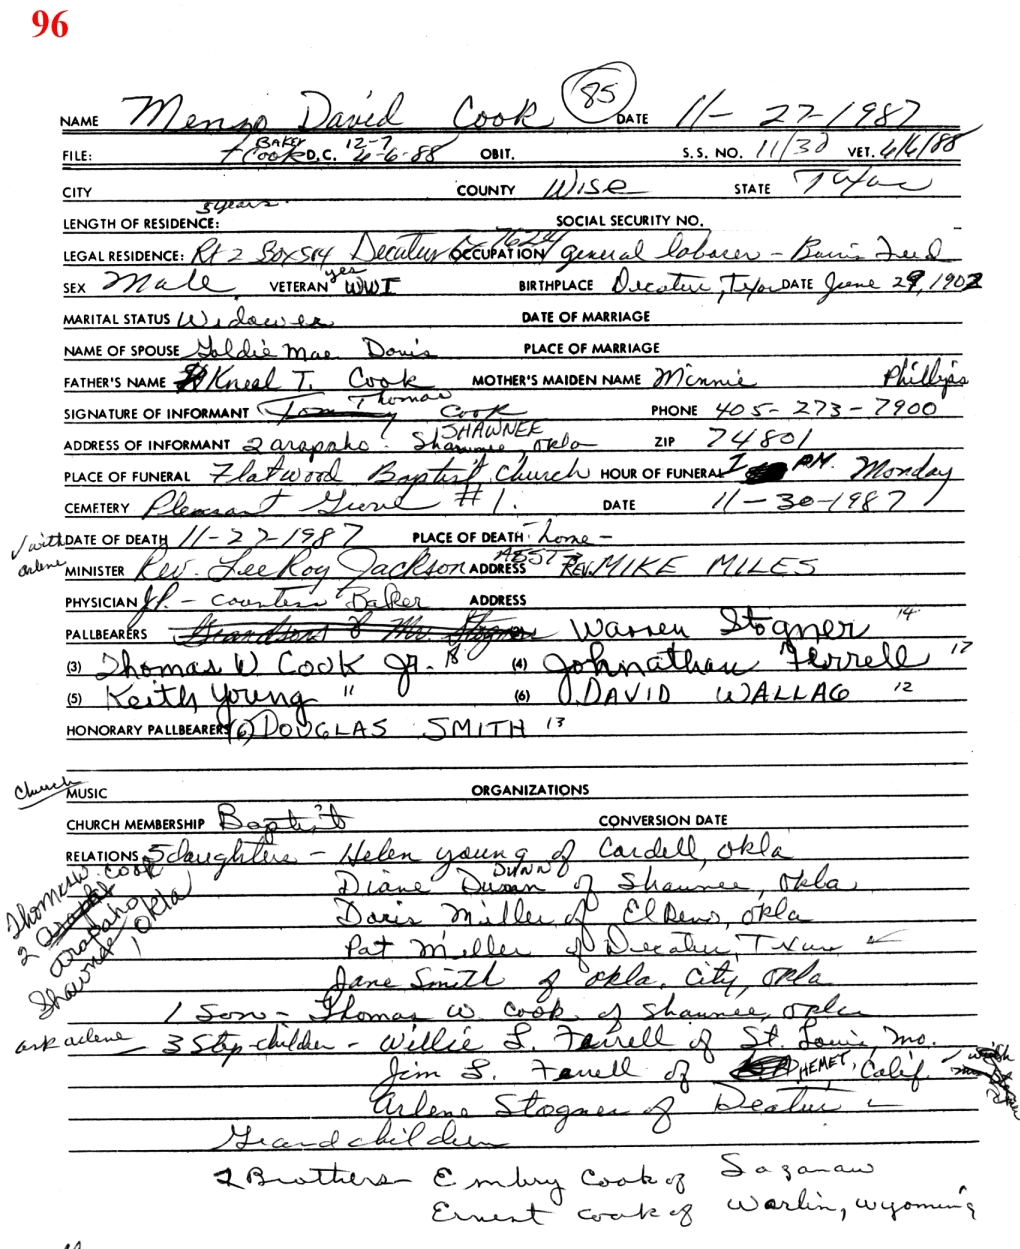 96
NAME Menzo David Cook (85) DATE 11-27-1987
FILE: Baker Cook D.C. 12-7 4-6-88 OBIT. S.S. NO. 11/30 VET. 4/6/88
CITY COUNTY Wise STATE Texas
LENGTH OF RESIDENCE: 5 years SOCIAL SECURITY NO.
LEGAL RESIDENCE: Rt 2 Box 514 Decatur 76234 OCCUPATION general laborer - Feed
SEX Male VETERAN yes WWI BIRTHPLACE Decatur, Texas DATE June 29, 1902
MARITAL STATUS Widower DATE OF MARRIAGE
NAME OF SPOUSE Goldie Mae Davis PLACE OF MARRIAGE
FATHER'S NAME Kneal T. Cook MOTHER'S MAIDEN NAME Minnie Phillips
SIGNATURE OF INFORMANT Tommy Thomas Cook PHONE 405-273-7900
ADDRESS OF INFORMANT 2 arapaho Shawnee SHAWNEE, Okla ZIP 74801
PLACE OF FUNERAL Flatwood Baptist Church HOUR OF FUNERAL 1 PM. Monday
CEMETERY Pleasant Grove #1. DATE 11-30-1987
√ with arlene
DATE OF DEATH 11-27-1987 PLACE OF DEATH - home -
MINISTER Rev. LeeRoy Jackson ADDRESS ASST REV. MIKE MILES
PHYSICIAN J.P. - Baker ADDRESS
PALLBEARERS Grandsons of Mr Stogner Warren Stogner 14
(3) Thomas W Cook Jr. 18 (4) Johnathan Ferrell 17
(5) Keith Young 11 (6) DAVID WALLAC 12
HONORARY PALLBEARERS (6) DOUGLAS SMITH 13
Church
MUSIC ORGANIZATIONS
CHURCH MEMBERSHIP Baptist CONVERSION DATE
RELATIONS 5 daughters - Helen Young of Cordell, Okla
Diane Dunn DUNN of Shawnee, Okla
Doris Miller of El Reno, Okla
Pat Miller of Decatur, Texas
Jane Smith of Okla. City, Okla
Thomas W. Cook
2 arapaho
Shawnee, Okla
1 Son - Thomas W Cook of Shawnee, Okla
ask arlene - 3 Step children - Willie L. Ferrell of St. Louis, Mo.
Jim L. Ferrell of HEMET, Calif.
Arlene Stogner of Decatur
Grandchildren
2 Brothers - Embry Cook of Saganaw
Ernest Cook of Worlin, Wyoming